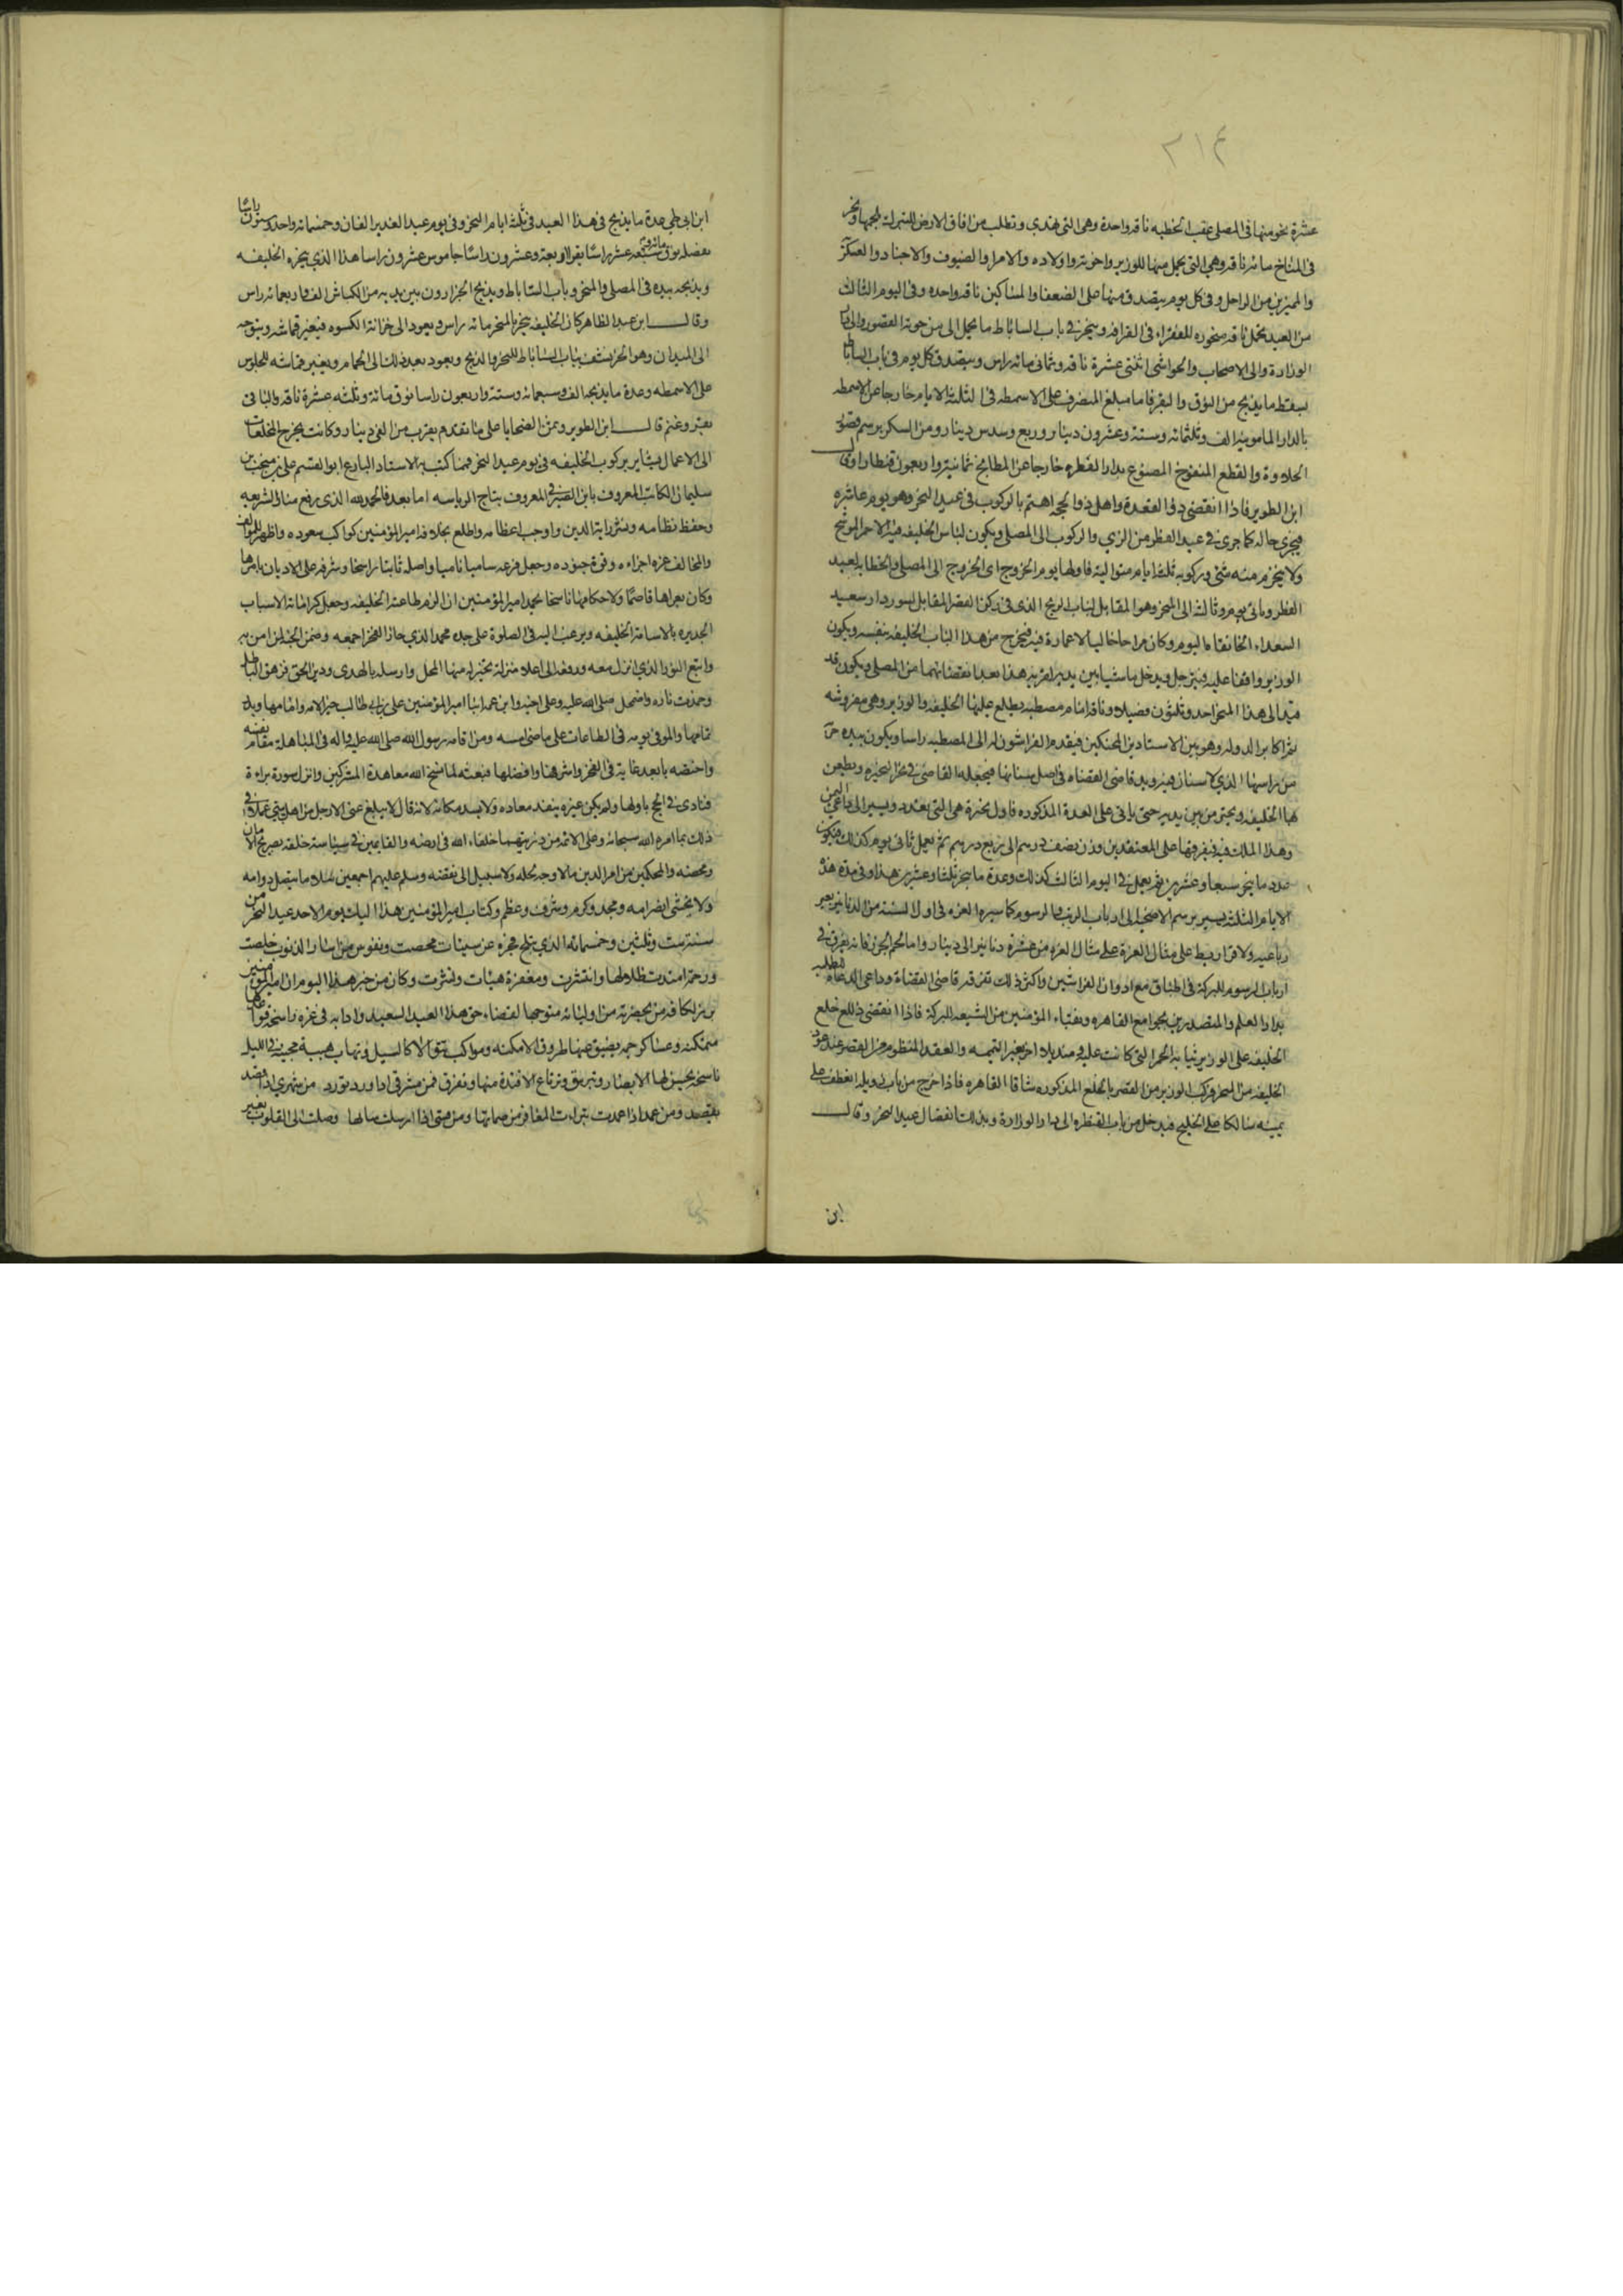 ٢١٤
عشرة نحو منها في المصلى عقب الخطبه ناقه واحدة وهي التي تهدى وتطلب من افاق الارض للتبرك بلحمها ونحر
في المناخ مائه ناقه وهي التي يحمل منها للوزير واخوته واولاده والامرا والضيوف والاجناد والعسكر
والمميزين من الراجل وفي كل يوم يتصدق منها على الضعفا والمساكين ناقه واحده وفي اليوم الثالث
من العيد تحمل ناقه منحوره للفقراء في القرافه وينحر في باب الساباط ما يحمل الى من حوته القصور والى دار
الوزارة والى الاصحاب والحواشي اثنتي عشرة ناقه وثماني مائه راس ويتصدق كل يوم في باب الساباط
بسقط ما يذبح من النوق والبقر فاما مبلغ المنصرف على الاسمطه في الثلثة الايام خارجا عن الاسمطه
بالدار المامونيه الف وثلثمائه وستة وعشرون دينار وربع وسدس دينار ومن السكر برسم قصور
الحلاوة والقطع المنفوخ المصنوع بدار الفطره خارجا عن المطابخ ثمانية واربعون قنطارا وقال
ابن الطوير فاذا انقضى ذو القعدة واهل ذو الحجه اهتم بالركوب في عيد النحر وهو يوم عاشره
فيجري حاله كما جرى في عيد الفطر من الزي والركوب الى المصلى ويكون لباس الخليفه فيه الاحمر الموشح
ولا ينخرم منه شئ وركوبه ثلثة ايام متوالية فاولها يوم الخروج اى الخروج الى المصلى والخطابه كعيد
الفطر وثاني يوم وثالثه الى المنحر وهو المقابل لباب الريح الذي في ركن القصر المقابل لسور دار سعيد
السعداء الخانقاه اليوم وكان براحا خاليا لا عمارة فيه فيخرج من هذا الباب الخليفه بنفسه ويكون
الوزير واقفا عليه فيترجل ويدخل ماشيا بين يديه لقربه هذا بعد انقضائهما من المصلى ويكون قد
قيد الى هذا المنحر احد وثلثون فصيلا وناقه امام مصطبه يطلع عليها الخليفه والوزير وهي مفروشه
ثم اكابر الدوله وهو بين الاستادين المحنكين فيقدم الفراشون له الى المصطبه راسا ويكون بيده حربة
من راسها الذي لا سنان فيه ويد قاضي القضاه في اصل سنانها فيجعله القاضي في نحر النحيره ويطعن
بها الخليفه وتجر من بين يديه حتى ياتي على العدة المذكوره فاول نحيرة هي التي تقدد ويسير الى داعي اليمن
وهذا الملك فيه فيفرقها على المعتقدين وزن نصف درهم الى ربع درهم ثم يعمل ثاني يوم كذلك فيكون
عدد ما ينحر سبعا وعشرين ثم يعمل في اليوم الثالث كذلك وعدة ما ينحر ثلثا وعشرين هذا وفي مدة هذه
الايام الثلثة يسير برسم الاضحية الى ارباب الرتب والرسوم كما سيره الغره في اول السنه من الدنانير بغير
رباعيه ولا قراريط على مثال الغرة على مثال الغره من عشرة دنانير الى دينار واما لحم الجزور فانه يفرق في
ارباب الرسوم للبركة في اطباق مع ادوان الفراشين واكثر ذلك تفرقه قاضي القضاة وداعي الدعاة للطلبه
بدار العلم والمتصدرين بجوامع القاهره ونقباء المؤمنين من الشيعه للبركة فاذا انقضى ذلك خلع
الخليفه على الوزير ثيابه الحمر التي كانت عليه ومنديلا اخر بغير اليتيمه والعقد المنظوم من القصر عند عود
الخليفه من المنحر وركب الوزير من القصر بالخلع المذكوره شاقا القاهره فاذا خرج من باب زويله انعطف على
يمينه سالكا على الخليج فيدخل من باب القنطره الى دار الوزارة وبذلك انفصال عيد النحر وقال
ابن
ابن ابي طي عدة ما يذبح في هذا العيد في ثلثة ايام النحر وفي يوم عيد الغدير الفان وخمسمائه واحد وستون راسا
تفصيله نوق مائه وسبعه عشر راسا بقر اربعة وعشرون راسا جاموس عشرون راسا هذا الذي ينحره الخليفه
ويذبحه بيده في المصلى والمنحر وباب الساباط ويذبح الجزارون بين يديه من الكباش الف واربعمائه راس
وقال ابن عبد الظاهر كان الخليفه ينحر بالمنحر مائه راس ويعود الى خزانة الكسوه فيغير قماشه ويتوجه
الى الميدان وهو الخرنشف بباب الساباط للنحر والذبح ويعود بعد ذلك الى الحمام ويغير قماشه للجلوس
على الاسمطه وعدة ما يذبحه الف وسبعمائه وستة واربعون راسا نوق مائة وثلثه عشرة ناقه والباقي
بقر وغنم قال ابن الطوير وثمن الضحايا على ما تقدم يقرب من الفي دينار وكانت تخرج المخلقات
الى الاعمال بشاير بركوب الخليفه في يوم عيد النحر فمما كتب به الاستاد البارع ابو القسم علي بن منجب بن
سليمان الكاتب المعروف بابن الصيرفي المعروف بتاج الرياسه اما بعد فالحمد لله الذي رفع منار الشريعه
وحفظ نظامه ونشر راية الدين واوجب اعظامه واطلع بخلافة امير المؤمنين كواكب سعوده واظهر للموالف
والمخالف عزه اجزاءه وقوة جنوده وجعل فرعه ساميا ناميا واصله ثابتا راسخا وشرفه على الاديان باسرها
وكان لعراها فاصما ولاحكامها ناسخا يحمد امير المؤمنين ان الزم طاعته الخليفه وجعل كراماته الاسباب
الجديره بالامامة الخليفه ويرغب اليه في الصلوة على جده محمد الذي حاز الفخر اجمعه وضمن الجنه لمن امن به
واتبع النور الذي انزل معه ورفعه الى اعلا منزلة تخير له منها المحل وارسله بالهدى ودين الحق فزهق الباطل
وخمدت ناره واضمحل صلى الله عليه وعلى اخيه وابن عمه ابينا امير المؤمنين علي بن ابي طالب خير الامه وامامها وبدر
تمامها والموفي يومه في الطاعات على ماضي امسه ومن اقامه رسول الله صلى الله عليه واله في المباهلة مقام نفسه
واختصه بابعد غاية في الفخر واشرفها وافضلها فبعثه لما نسخ الله معاهدة المشركين وانزل سورة براءة
فنادى في الحج باولها ولم يكن غيره ينفد نفاده ولا يسد مكانه لانه قال لا يبلغ عني الا رجل من اهل بيتي عملا في
ذلك بما امره الله سبحانه وعلى الائمه من ذريتهما خلفاء الله في ارضه والقايمين في سياسة خلقه بصريح الايمان
ومحضه والمحكمين من امر الدين مالا وجه لحله ولا سبيل الى نقضه وسلم عليهم اجمعين سلاما يتصل دوامه
ولا يخشى انصرامه ومجد وكرم وشرف وعظم وكتاب امير المؤمنين هذا اليك يوم الاحد عيد النحر من
سنة ست وثلثين وخمسمائه الذي تبلج فجره عن سيئات محصت ونفوس من اسار الذنوب خلصت
ورحمة امتدت ظلالها وانتشرت ومغفرة هيئات ونشرت وكان من خبر هذا اليوم ان امير المؤمنين
برز لكافه من بحضرته من اوليائه متوجها لقضاء حق هذا العيد السعيد وادابه في عزه راسخه قواعدها
متمكنه وعساكر جمه يضيق عنها ظروف الامكنه ومواكب تتوالا كالسيل وتهاب هيبه مجيئه في الليل
باسلحة تحسر لها الابصار وتبرق وترتاع الافئدة منها وتفرق فمن مشرفي اذا ورد تورد من سمهري اذا قصد
تقصد ومن عمد اذا عمدت تبراءت المغافر من ضمانها ومن قسي اذا ارسلت بنانها وصلت الى القلوب بغير